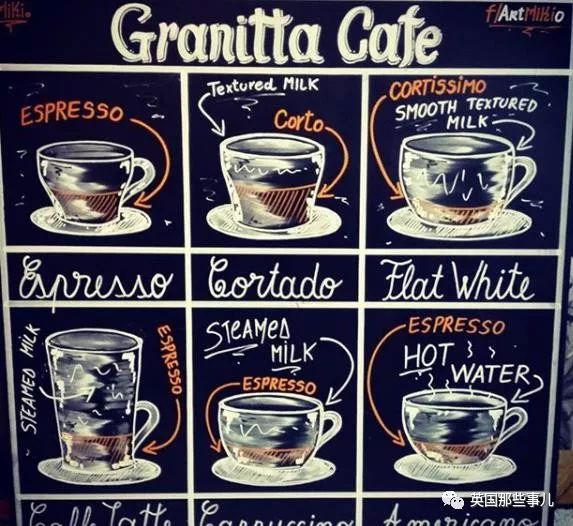 Miki.
f/ArtMiKio
Granitta Cafe
ESPRESSO
Textured MILK
Corto
CORTISSIMO
SMOOTH TEXTURED
MILK
Espresso
Cortado
Flat White
STEAMED MILK
ESPRESSO
STEAMED
MILK
ESPRESSO
ESPRESSO
HOT
WATER
Caffe Latte
Cappuccino
Americano
英国那些事儿